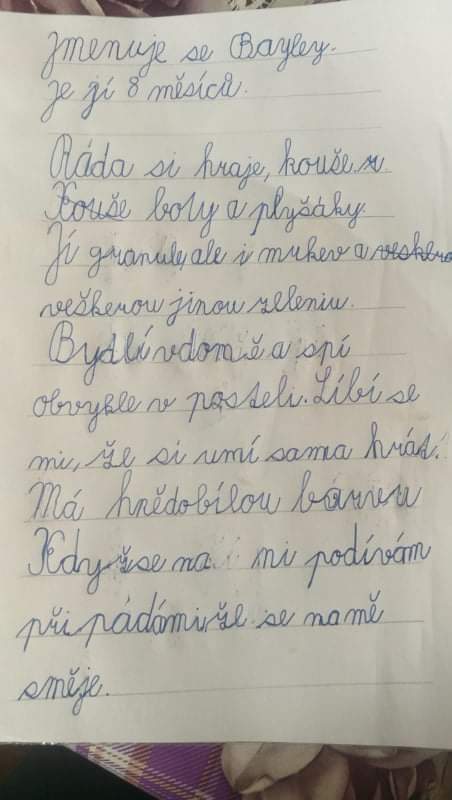 Jmenuje se Bayley.
Je jí 8 měsíců.
Ráda si hraje, kouše.
Kouše boty a plyšáky.
Jí granule, ale i mrkev a
veškerou jinou zeleninu.
Bydlí v domě a spí
obvykle v posteli. Líbí se
mi, že si umí sama hrát.
Má hnědobílou barvu
Když se na mi podívám
při pádámi, že se na mě
směje.